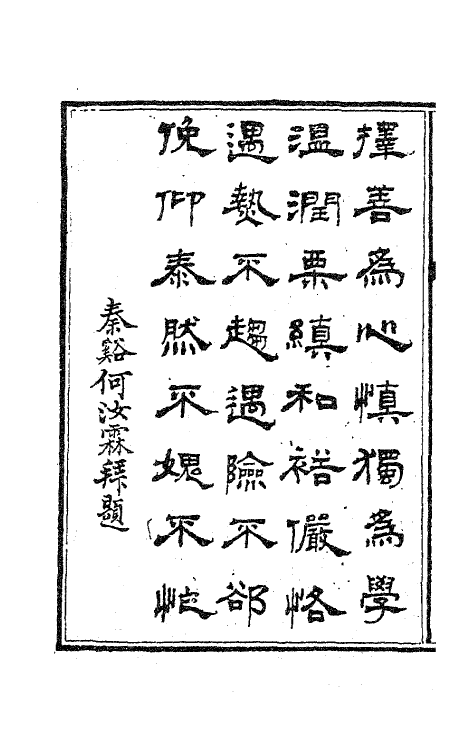 擇善為心慎獨為學
溫潤栗縝和裕儼恪
遇熱不趨遇險不郤
俛仰泰然不媿不怍
秦谿何汝霖拜題